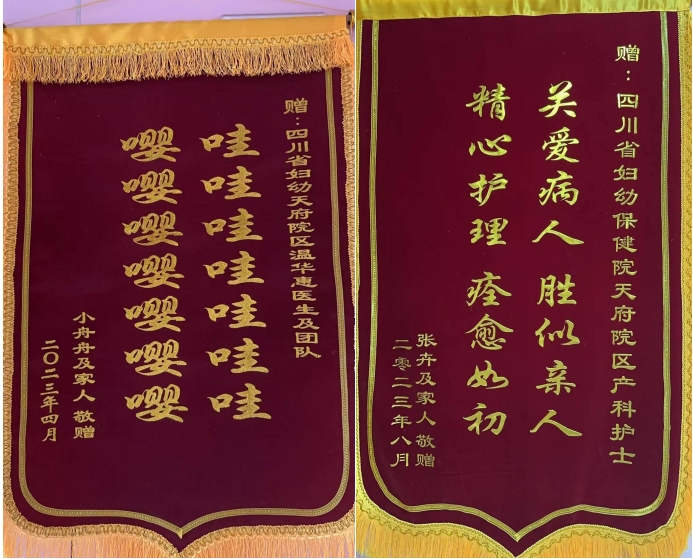 赠:四川省妇幼天府院区温华惠医生及团队
哇哇哇哇哇哇哇
嘤嘤嘤嘤嘤嘤嘤
小舟舟及家人 敬赠
二〇二三年四月
赠:四川省妇幼保健院天府院区产科护士
关爱病人 胜似亲人
精心护理 痊愈如初
张卉及家人 敬赠
二零二三年八月